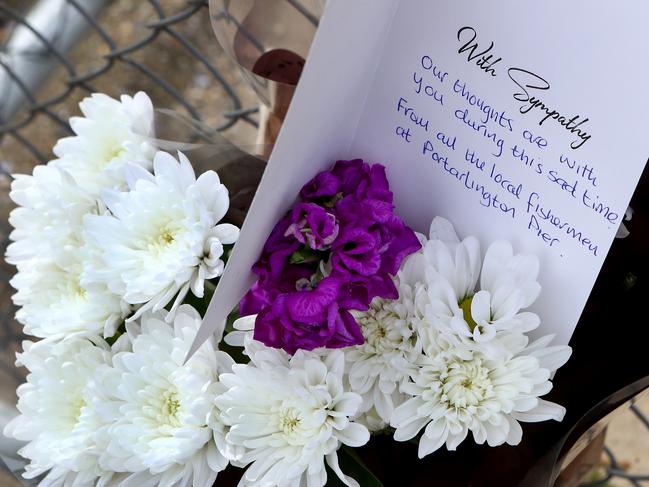 With Sympathy
Our thoughts are with
you during this sad time.
From all the local fishermen
at Portarlington Pier.